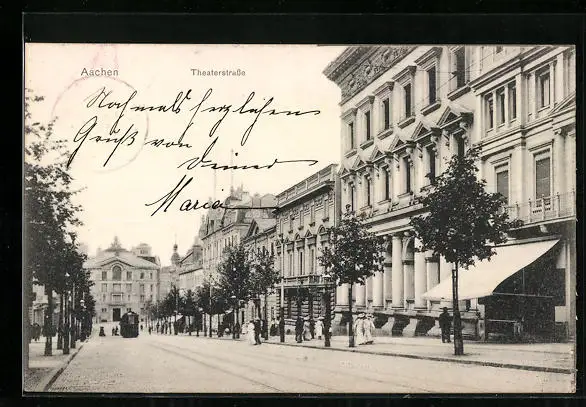 Aachen
Theaterstraße
Nochmals herzlichen
Gruß von
Deiner
Maria